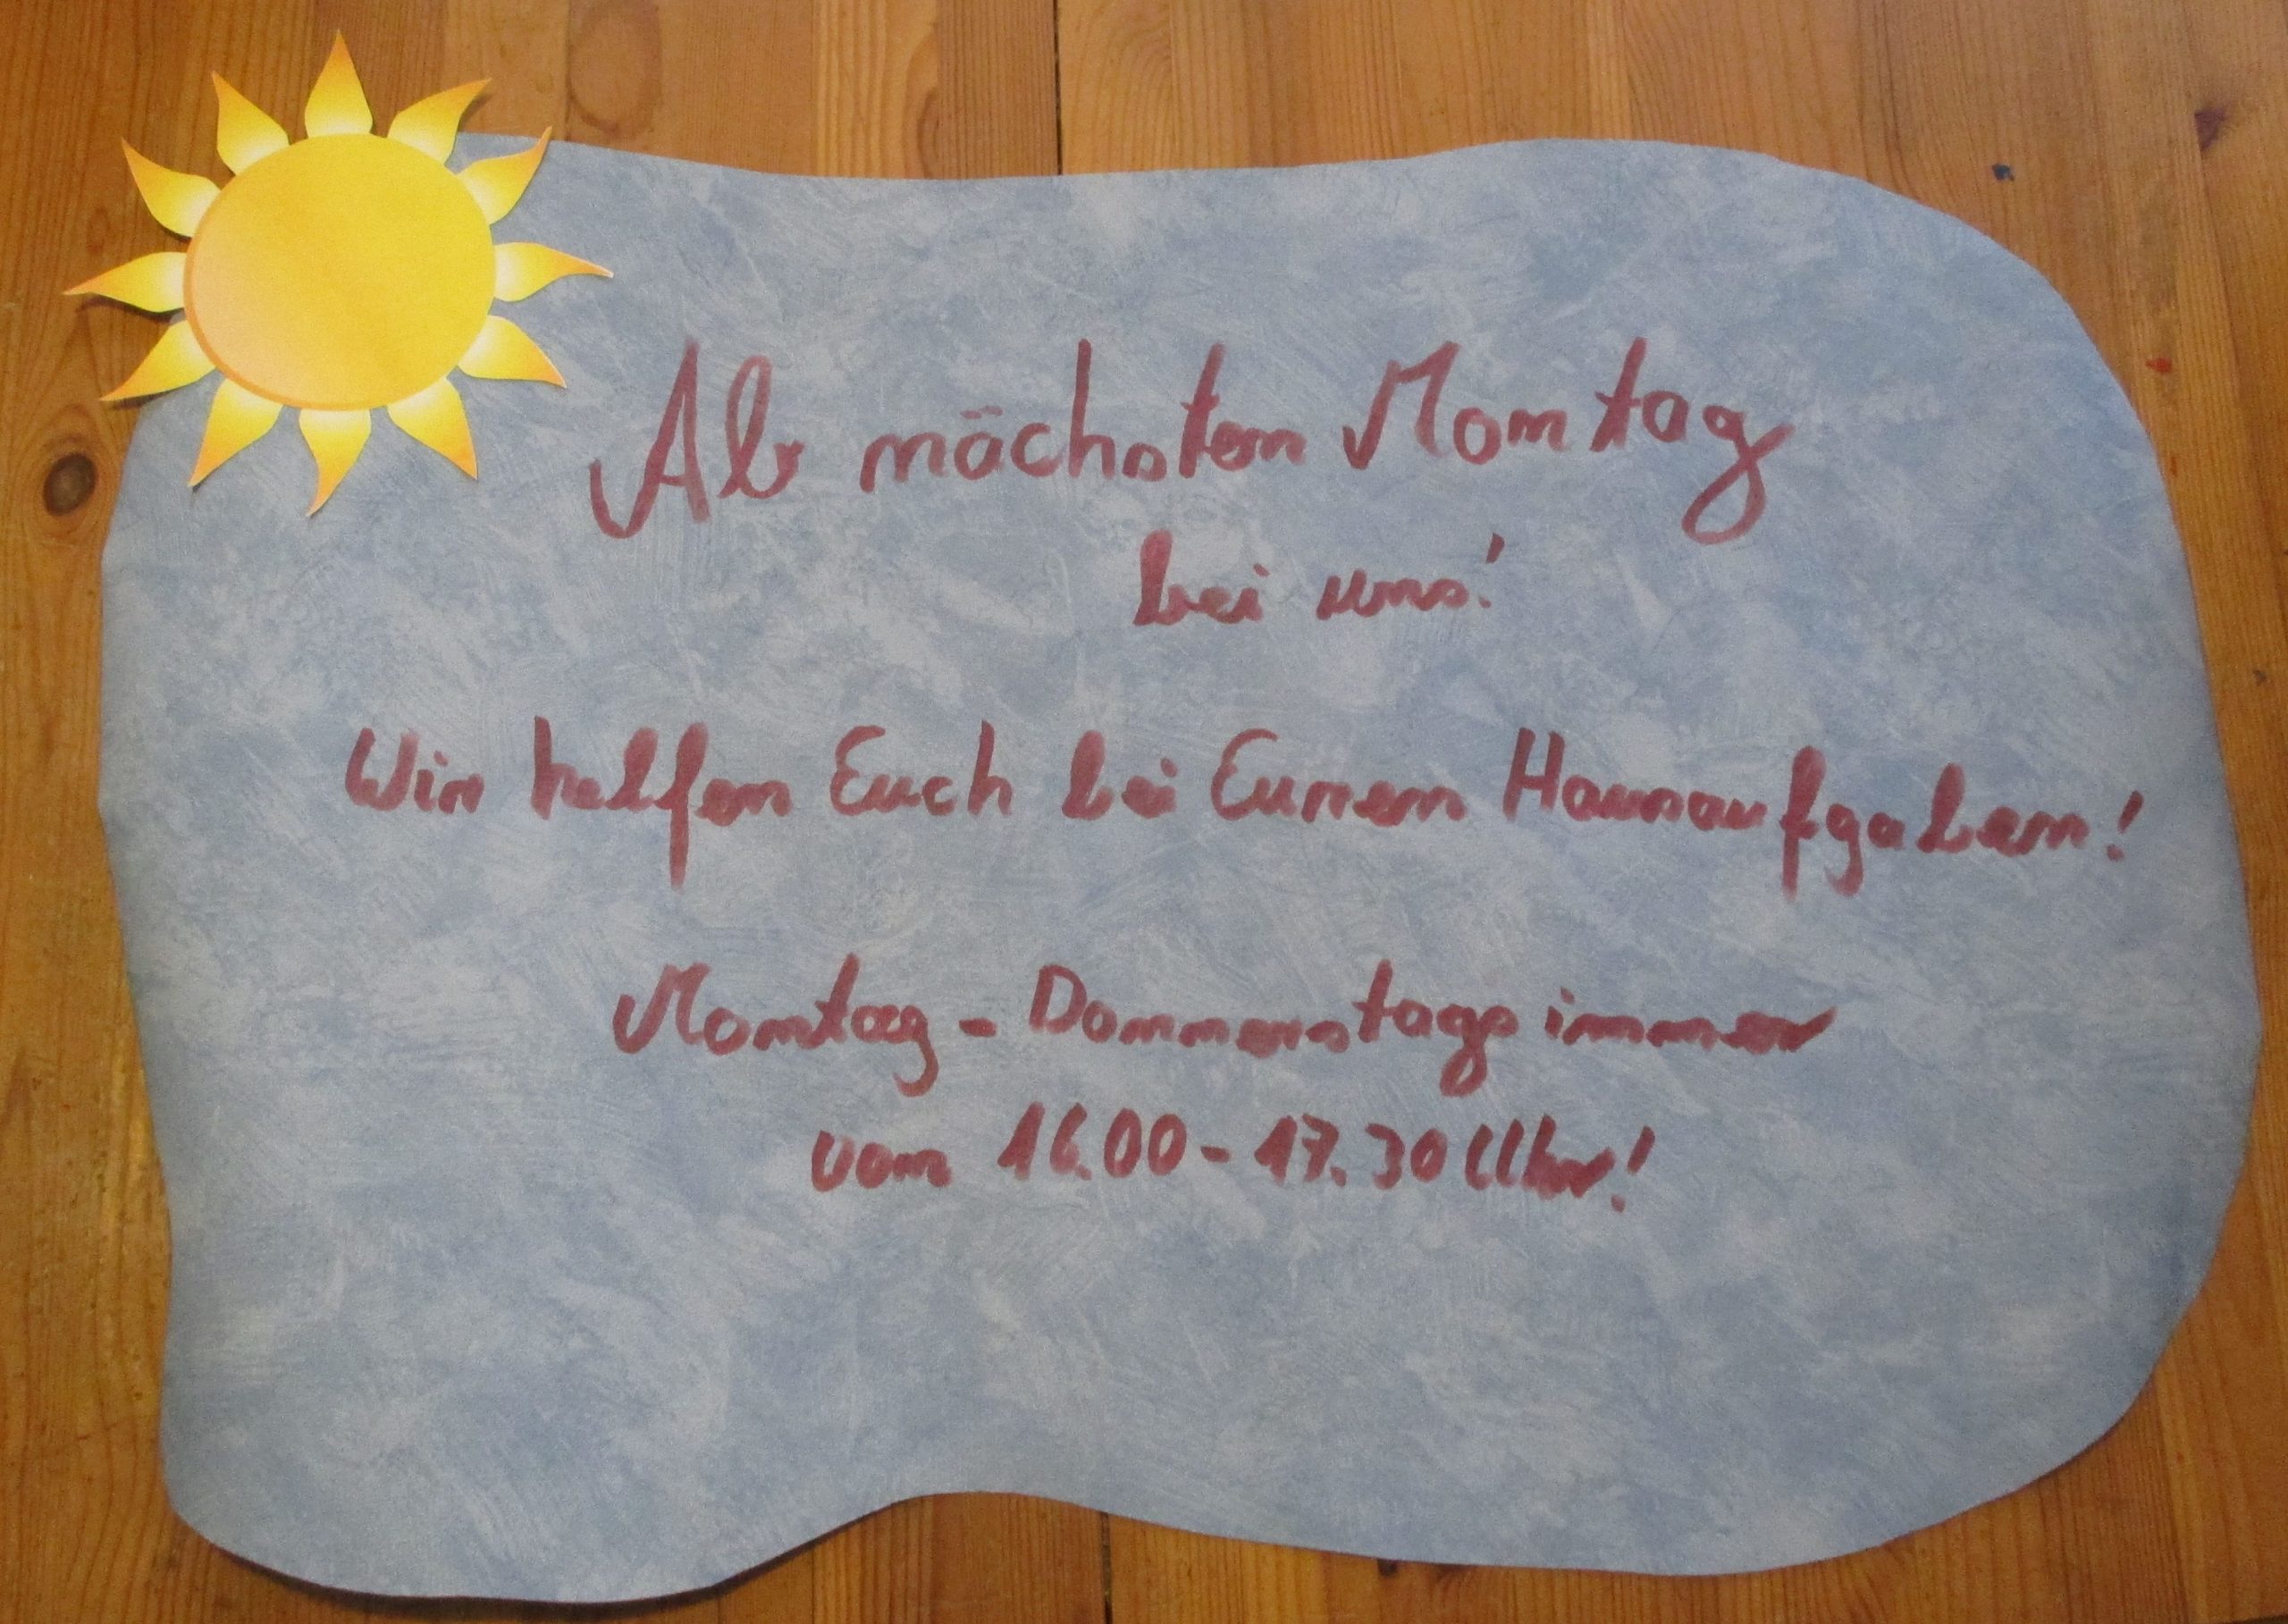 Ab nächsten Montag
bei uns!
Wir helfen Euch bei Euren Hausaufgaben!
Montag - Donnerstags immer
von 16.00 - 17.30 Uhr!